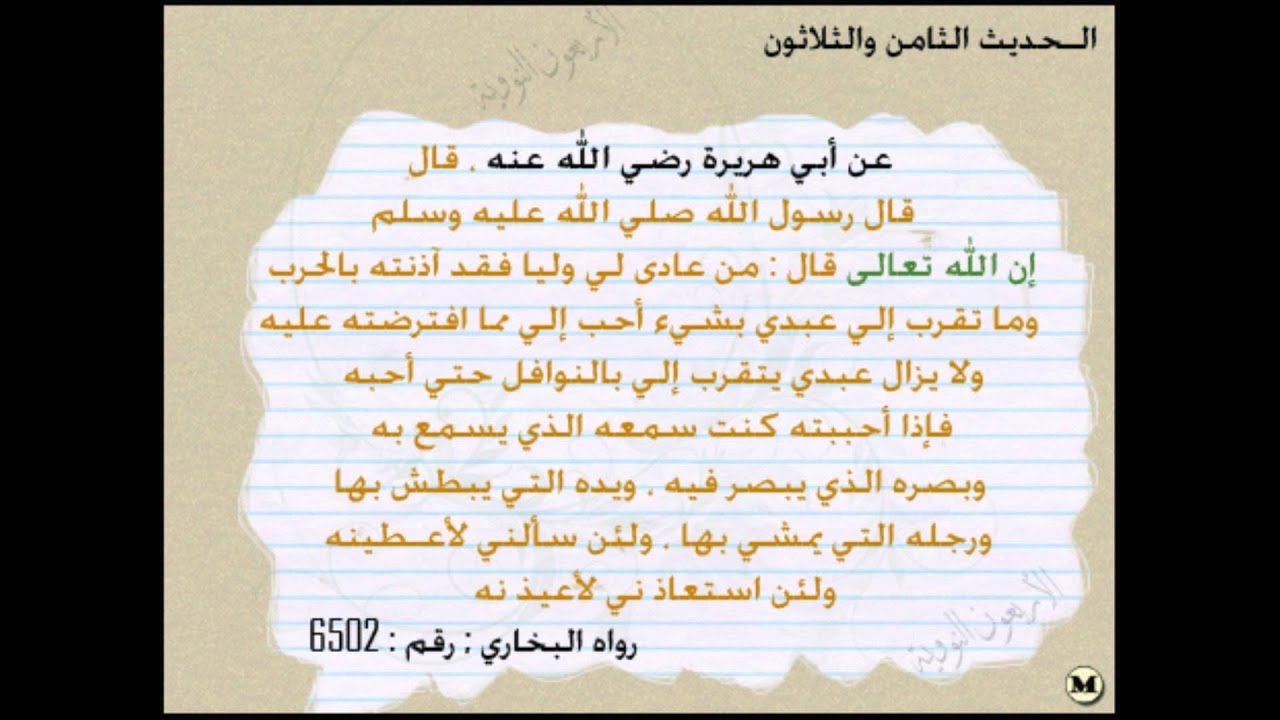 الـحديث الثامن والثلاثون
الأربعون النووية
عن أبي هريرة رضي الله عنه . قال
قال رسول الله صلي الله عليه وسلم
إن الله تعالى قال : من عادى لي وليا فقد آذنته بالحرب
وما تقرب إلي عبدي بشيء أحب إلي مما افترضته عليه
ولا يزال عبدي يتقرب إلي بالنوافل حتي أحبه
فإذا أحببته كنت سمعه الذي يسمع به
وبصره الذي يبصر فيه . ويده التي يبطش بها
ورجله التي يمشي بها . ولئن سألني لأعـطينه
ولئن استعاذ ني لأعيذ نه
رواه البخاري ; رقم : 6502
الأربعون النووية
M